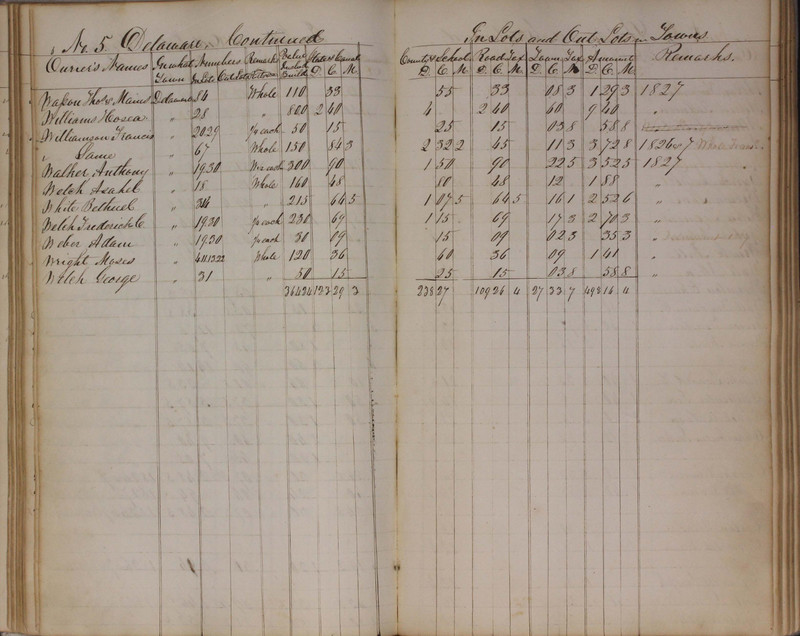 No. 5 Delaware, Continued In Lots and Out Lots in Towns
Owner's Names In what Town Numbers In Lots Out Lots Remarks Value Buildg State & Canal D C M County & School D C M Road Tax D C M Town Tax D C M Amount D C M Remarks.
Delaware 84 Whole 110 33 55 33 08 3 1 29 3 1827
Williams Hosea " 28 " 800 2 40 4 2 40 60 9 40 "
Williamson Francis " 20 29 each 50 15 25 15 03 8 58 8
" Same " 67 Whole 150 84 3 2 32 2 45 11 3 3 72 8 1826 & 7
Walker Anthony " 19.30 each 300 90 1 50 90 22 5 3 52 5 1827
Welch Asahel " 18 Whole 160 48 80 48 12 1 88 "
White Bethuel " 34 " 215 64 5 1 07 5 64 5 16 1 2 52 6 "
Welch Frederick " 19.30 each 230 69 1 15 69 17 3 2 70 3 "
Weber Adam " 19.30 each 30 09 15 09 02 3 35 3 "
Wright Moses " Whole 120 36 60 36 09 1 41 "
Welch George " 31 " 50 15 25 15 03 8 58 8 "
36424 123 29 3 238 27 109 36 4 27 33 7 498 16 4